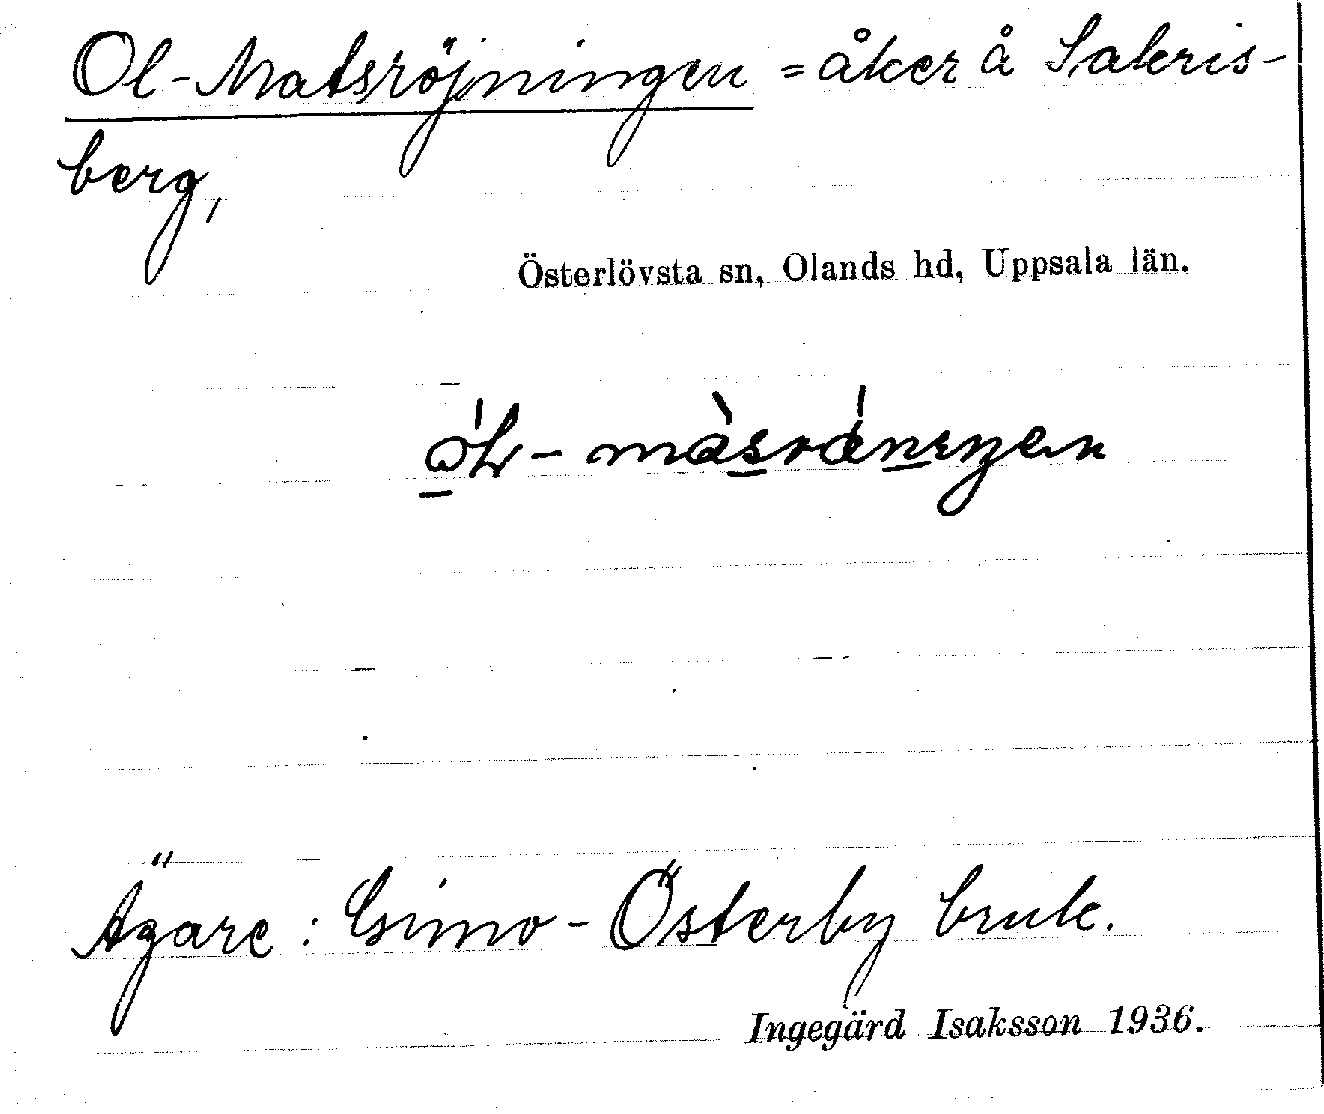 Ol-Matsröjningen = åker å Sakris-
berg,
Österlövsta sn, Olands hd, Uppsala län.
Ägare: Gimo-Österby bruk.
Ingegärd Isaksson 1936.